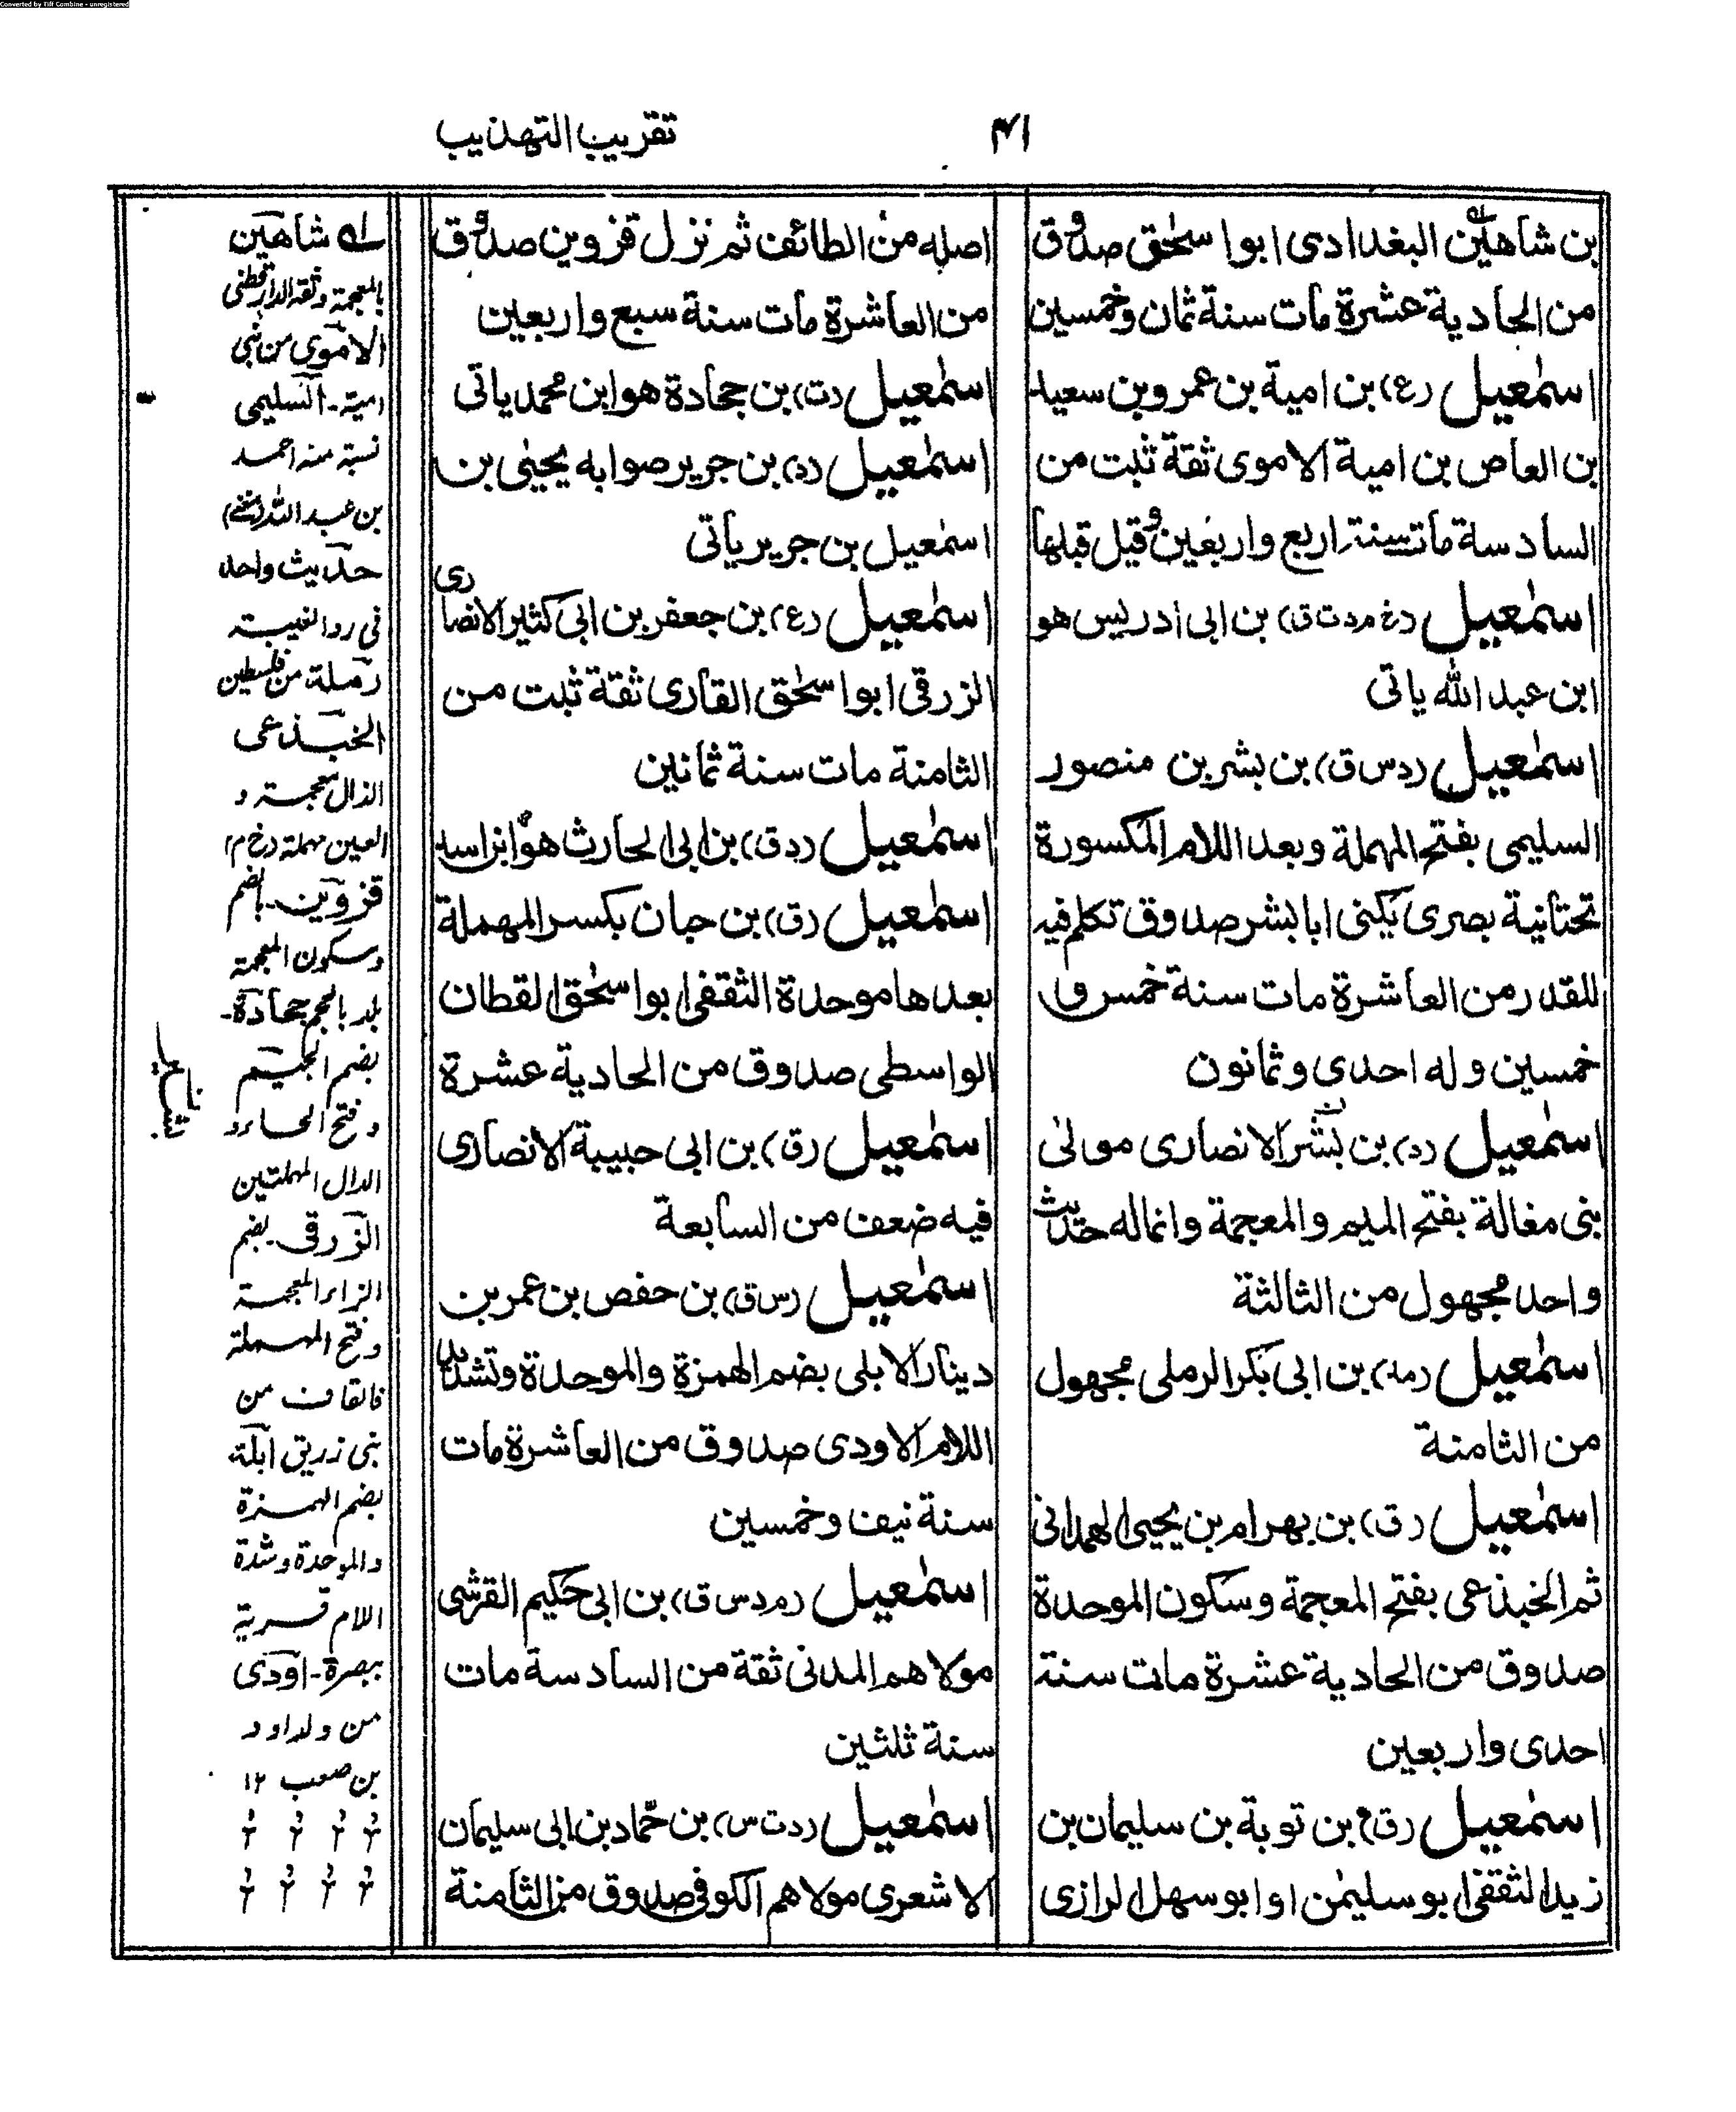 Converted by Tiff Combine - unregistered
٤١
تقريب التهذيب
بن شاهين البغدادى ابو اسحٰق صدوق
من الحادية عشرة مات سنة ثمان وخمسين
اسمٰعيل (ع) بن امية بن عمرو بن سعيد
بن العاص بن امية الاموى ثقة ثبت من
السادسة مات سنة اربع واربعين وقيل قبلها
اسمٰعيل (خ م د ت ق) بن ابى ادريس هو
ابن عبد الله ياتى
اسمٰعيل (د س ق) بن بشر بن منصور
السليمى بفتح المهملة وبعد اللام المكسورة
تحتانية بصرى يكنى ابا بشر صدوق تكلم فيه
للقدر من العاشرة مات سنة خمس و
خمسين وله احدى وثمانون
اسمٰعيل (د) بن بشر الانصارى مولىٰ
بنى مغالة بفتح الميم والمعجمة وانما له حديث
واحد مجهول من الثالثة
اسمٰعيل (مد) بن ابى بكر الرملى مجهول
من الثامنة
اسمٰعيل (ق) بن بهرام بن يحيى الهمدانى
ثم الخبذعى بفتح المعجمة وسكون الموحدة
صدوق من الحادية عشرة مات سنة
احدى واربعين
اسمٰعيل (ق) بن توبة بن سليمان بن
زيد الثقفى ابو سليمٰن او ابو سهل الرازى
اصله من الطائف ثم نزل قزوين صدوق
من العاشرة مات سنة سبع واربعين
اسمٰعيل (ت) بن جحادة هو ابن محمد ياتى
اسمٰعيل (د) بن جرير صوابه يحيىٰ بن
اسمٰعيل بن جرير ياتى
اسمٰعيل (ع) بن جعفر بن ابى كثير الانصارى
الزرقى ابو اسحٰق القارى ثقة ثبت من
الثامنة مات سنة ثمانين
اسمٰعيل (د ق) بن ابى الحارث هو ابن اسد
اسمٰعيل (ق) بن حبان بكسر المهملة
بعدها موحدة الثقفى ابو اسحٰق القطان
الواسطى صدوق من الحادية عشرة
اسمٰعيل (ق) بن ابى حبيبة الانصارى
فيه ضعف من السابعة
اسمٰعيل (س ق) بن حفص بن عمر بن
دينار الابلى بضم الهمزة والموحدة وتشديد
اللام الاودى صدوق من العاشرة مات
سنة نيف وخمسين
اسمٰعيل (م د س ق) بن ابى حكيم القرشى
مولاهم المدنى ثقة من السادسة مات
سنة ثلثين
اسمٰعيل (د ت س) بن حماد بن ابى سليمان
الاشعرى مولاهم الكوفى صدوق من الثامنة
له شاهين
بالمعجمة وثقه الدارقطنى
الاموى من بنى
امية - السليمى
نسبة منه احمد
بن عبد الله
حديث واحد
فى رد الغيبة
رملة من فلسطين
الخبذعى
الذال معجمة و
العين مهملة (خ م)
قزوين - بالضم
وسكون المعجمة
بلد بالعجم جحادة -
بضم الجيم
وفتح الحاء و
الدال المهملتين
الزرقى - بضم
الزاء المعجمة
وفتح المهملة
فالقاف من
بنى زريق ابلة
بضم الهمزة
والموحدة وشدة
اللام قرية
ببصرة - اودى
من ولد اود
بن صعب ١٢